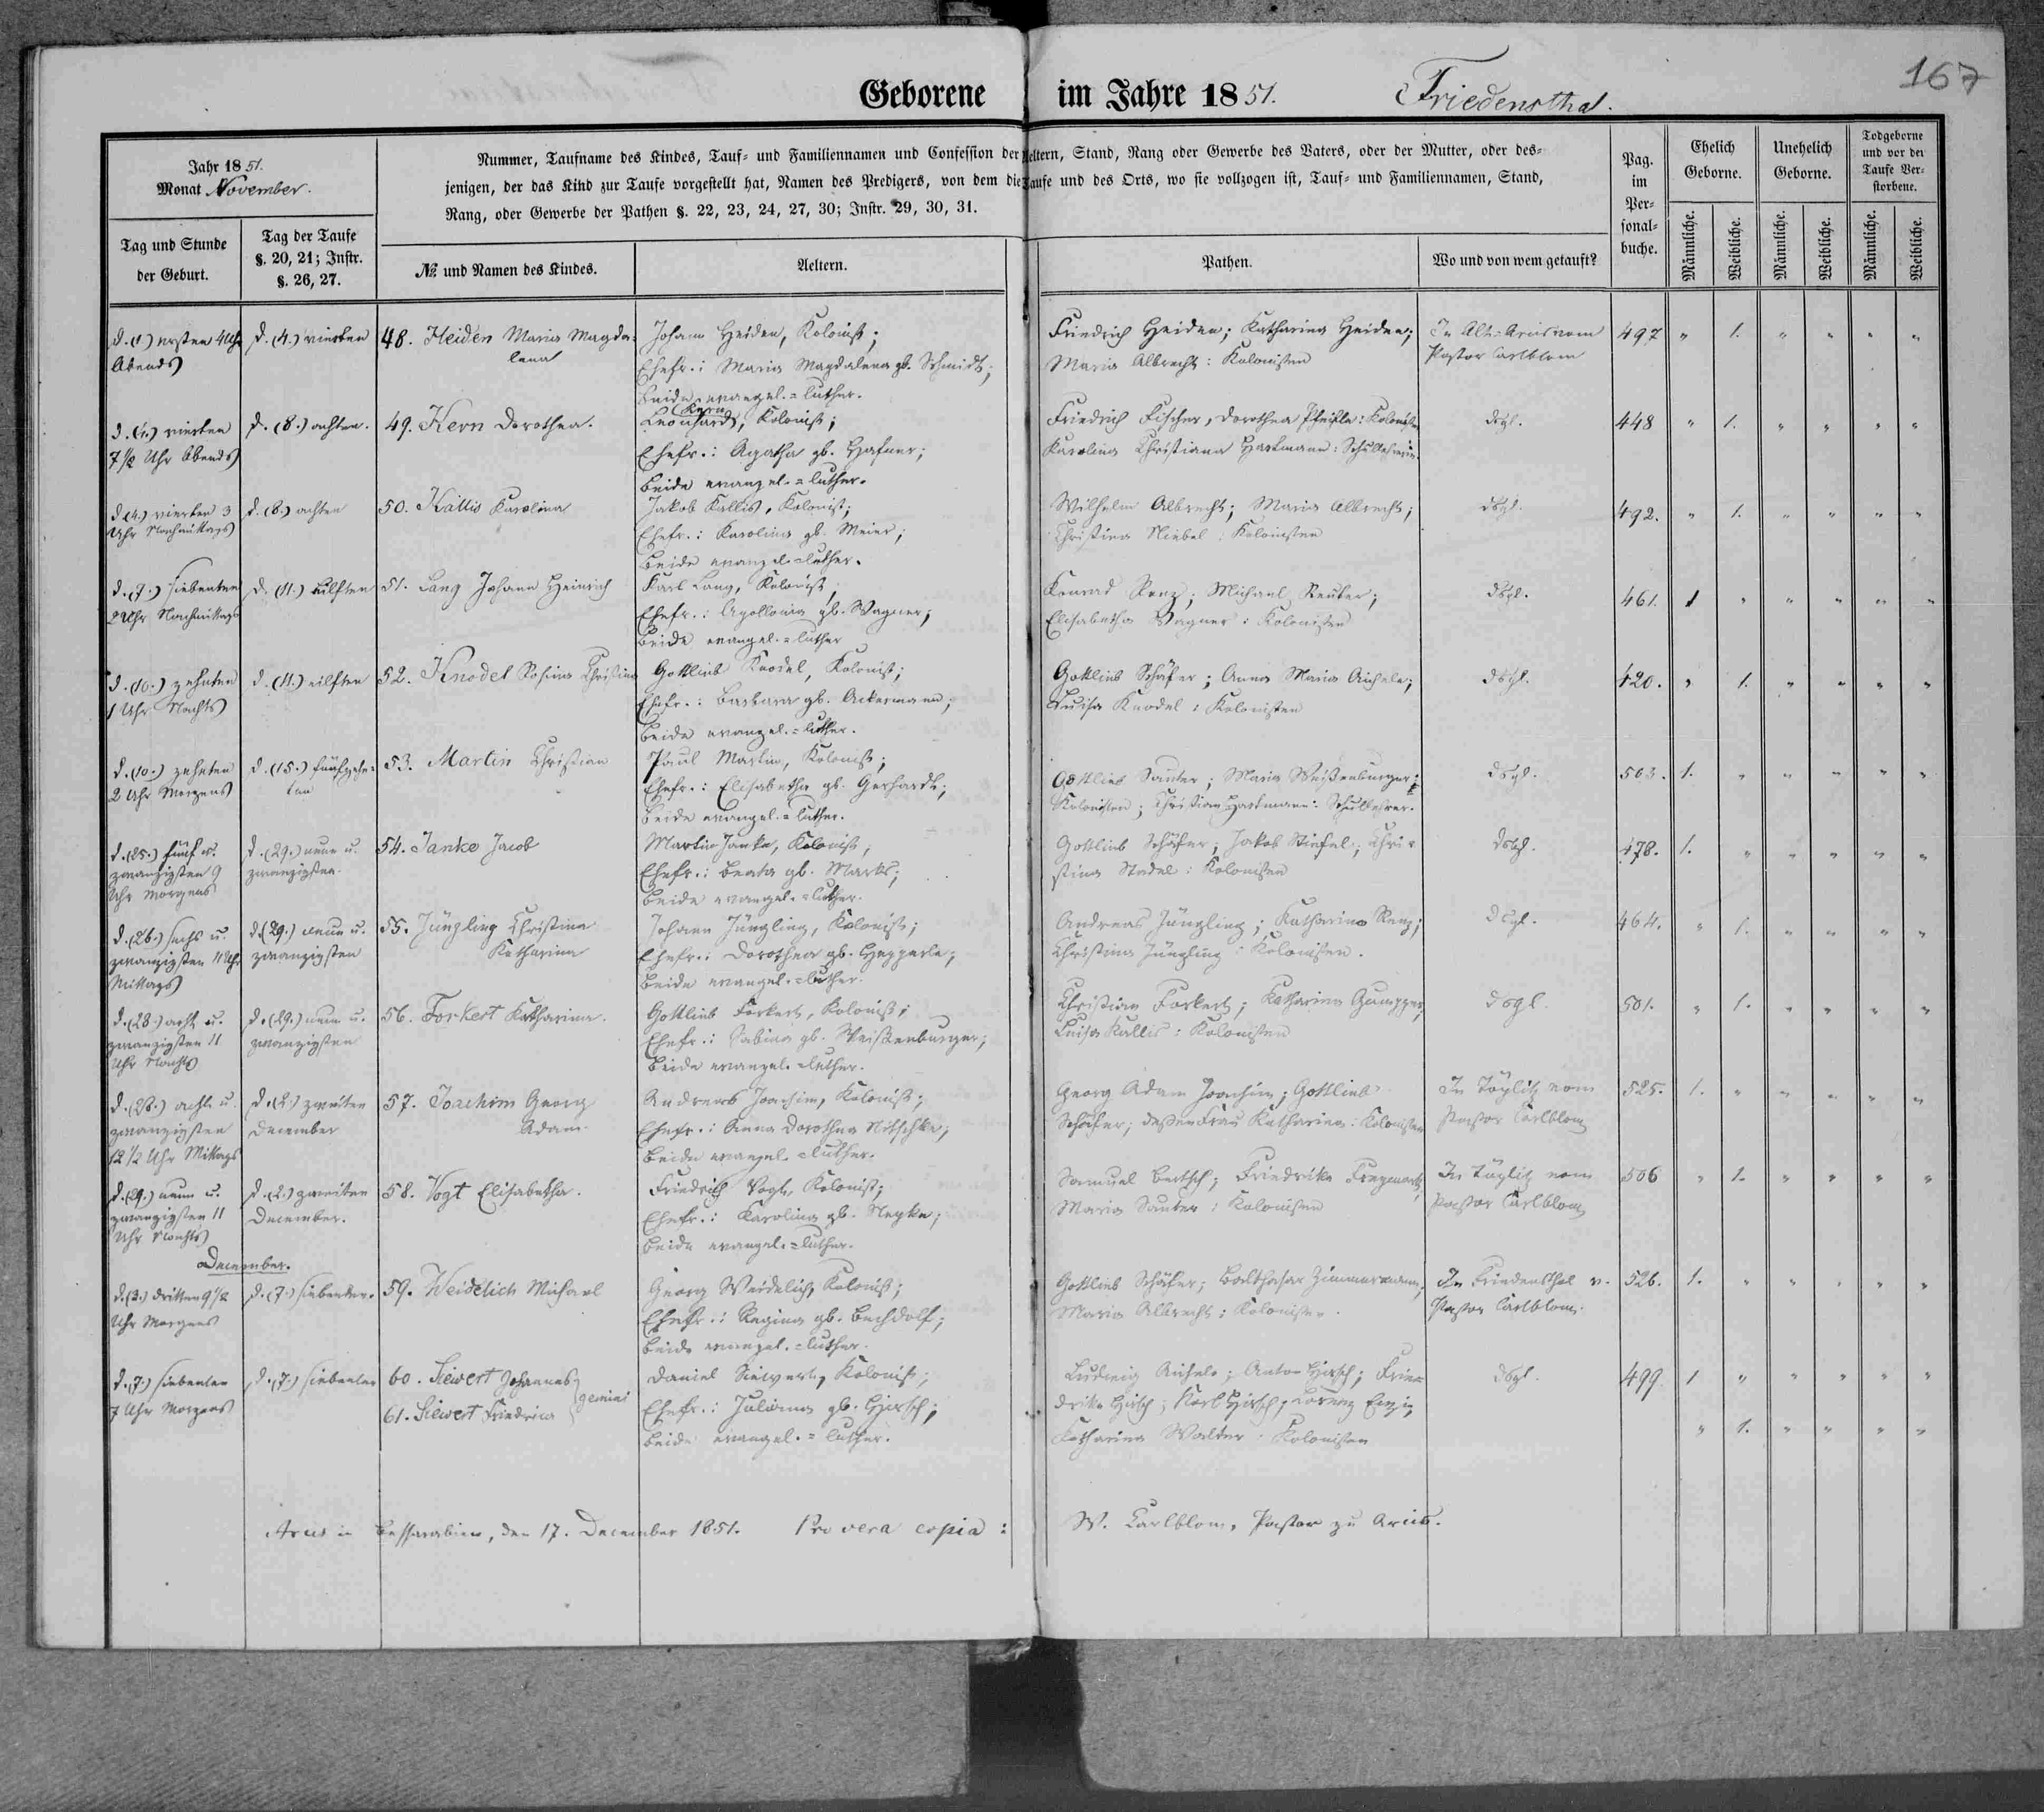 167
Geborene im Jahre 1851. Friedensthal.
Jahr 1851.
Monat November.
Nummer, Taufname des Kindes, Tauf- und Familiennamen und Confession der Aeltern, Stand, Rang oder Gewerbe des Vaters, oder der Mutter, oder des-
jenigen, der das Kind zur Taufe vorgestellt hat, Namen des Predigers, von dem die Taufe und des Orts, wo sie vollzogen ist, Tauf- und Familiennamen, Stand,
Rang, oder Gewerbe der Pathen §. 22, 23, 24, 27, 30; Instr. 29, 30, 31.
Tag und Stunde
der Geburt.
Tag der Taufe
§. 20, 21; Instr.
§. 26, 27.
№ und Namen des Kindes.
Aeltern.
Pathen.
Wo und von wem getauft?
Pag.
im
Per-
sonal-
buche.
Ehelich
Geborne.
Unehelich
Geborne.
Todgeborne
und vor der
Taufe Ver-
storbene.
Männliche.
Weibliche.
Männliche.
Weibliche.
Männliche.
Weibliche.
d. (1.) ersten 4 Uhr
Abends
d. (4.) vierten
48. Heiden Maria Magda-
lena
Johann Heiden, Kolonist;
Ehefr.: Maria Magdalena gb. Schmidt;
beide evangel.=luther.
Friedrich Heiden; Katharina Heiden;
Maria Albrecht: Kolonisten
In Alt-Arcis vom
Pastor Carlblom
497 " 1. " " " "
d. (4.) vierten
7 1/2 Uhr Abends
d. (8.) achten.
49. Kern Dorothea.
Kern
Leonhard, Kolonist;
Ehefr.: Agatha gb. Hafner;
beide evangel.=luther.
Friedrich Fischer, Dorothea Pfeifle: Kolonisten
Karolina Christiana Hartmann: Schullehrerin.
dsgl.
448 " 1. " " " "
d. (4.) vierten 3
Uhr Nachmittags
d. (8.) achten
50. Kallis Karolina
Jakob Kallis, Kolonist;
Ehefr.: Karolina gb. Meier;
beide evangel.=luther.
Wilhelm Albrecht; Maria Albrecht;
Christina Niebel: Kolonisten
dsgl.
492. " 1. " " " "
d. (7.) siebenten
2 Uhr Nachmittags
d. (11.) eilften
51. Lang Johann Heinrich
Karl Lang, Kolonist,
Ehefr.: Apollonia gb. Wagner;
beide evangel.=luther
Konrad Renz; Michael Reuter;
Elisabetha Wagner: Kolonisten
dsgl.
461. 1 " " " " "
d. (10.) zehnten
1 Uhr Nachts
d. (11.) eilften
52. Knodel Rosina Christina
Gottlieb Knodel, Kolonist;
Ehefr.: Barbara gb. Ackermann;
beide evangel.=luther.
Gottlieb Schäfer; Anna Maria Aichele;
Luisa Knodel: Kolonisten
dsgl.
420. " 1. " " " "
d. (10.) zehnten
2 Uhr Morgens
d. (15.) fünfzehn-
ten
53. Martin Christian
Paul Martin, Kolonist;
Ehefr.: Elisabetha gb. Gerhardt;
beide evangel.=luther.
Gottlieb Sauter; Maria Weißenburger;
Kolonisten; Christian Hartmann: Schullehrer.
dsgl.
503. 1. " " " " "
d. (25.) fünf u.
zwanzigsten 9
Uhr Morgens
d. (29.) neun u.
zwanzigsten.
54. Janke Jacob
Martin Janke, Kolonist,
Ehefr.: Beata gb. Marks;
beide evangel.=luther.
Gottlieb Schäfer; Jakob Stiefel; Chri-
stina Stadel: Kolonisten
dsgl.
478. 1. " " " " "
d. (26.) sechs u.
zwanzigsten 11 Uhr
Mittags
d. (29.) neun u.
zwanzigsten
55. Jüngling Christina
Katharina
Johann Jüngling, Kolonist;
Ehefr.: Dorothea gb. Hepperle;
beide evangel.=luther.
Andreas Jüngling; Katharina Renz;
Christina Jüngling: Kolonisten.
dsgl.
464. " 1. " " " "
d. (28.) acht u.
zwanzigsten 11
Uhr Nachts
d. (29.) neun u.
zwanzigsten
56. Forkert Katharina.
Gottlieb Forkert, Kolonist;
Ehefr.: Sabina gb. Weißenburger;
beide evangel.=luther.
Christian Forkert; Katharina Gumpper,
Luisa Kallis: Kolonisten
dsgl.
501. " 1. " " " "
d. (28.) acht u.
zwanzigsten
12 1/2 Uhr Mittags
d. (2.) zweiten
December
57. Joachim Georg
Adam
Andreas Joachim, Kolonist;
Ehefr.: Anna Dorothea Nitschke;
beide evangel.=luther.
Georg Adam Joachim; Gottlieb
Schäfer; dessen Frau Katharina: Kolonisten
In Töplitz vom
Pastor Carlblom
525. 1. " " " " "
d. (29.) neun u.
zwanzigsten 11
Uhr Nachts
d. (2.) zweiten
December.
58. Vogt Elisabetha.
Friedrich Vogt, Kolonist;
Ehefr.: Karolina gb. Nepke;
beide evangel.=luther.
Samuel Bertsch; Friedrike
Maria Sauter: Kolonisten
In Töplitz vom
Pastor Carlblom
506 " 1. " " " "
December.
d. (3.) dritten 9 1/2
Uhr Morgens
d. (7.) siebenten.
59. Weidelich Michael
Georg Weidelich, Kolonist;
Ehefr.: Regina gb. Bechdolf;
beide evangel.=luther.
Gottlieb Schäfer; Balthasar Zimmermann,
Maria Albrecht: Kolonisten.
In Friedensthal v.
Pastor Carlblom.
526. 1. " " " " "
d. (7.) siebenten
7 Uhr Morgens
d. (7.) siebenten
60. Siewert Johannes
61. Siewert Friedrica
gemini
Daniel Siewert, Kolonist;
Ehefr.: Juliana gb. Hirsch;
beide evangel.=luther.
Ludwig Aichele; Anton Hirsch; Frie-
drike Hirsch; Karl Hirsch; Lorenz
Katharina Walter: Kolonisten
dsgl.
499 1 " " " " "
" 1. " " " "
Arcis in Bessarabien, den 17. December 1851. Pro vera copia: W. Carlblom, Pastor zu Arcis.